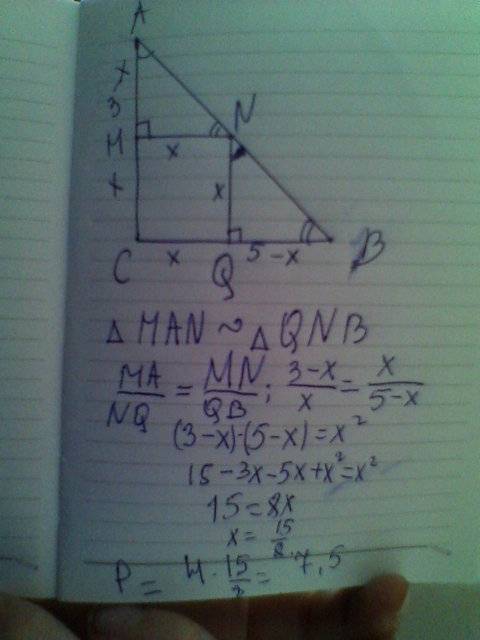 A
x
3
M
N
x
x
x
C
x
Q
5-x
B
△ MAN ~ △ QNB
MA/NQ = MN/QB; 3-x/x = x/5-x
(3-x)·(5-x)=x²
15-3x-5x+x²=x²
15=8x
x=15/8
P = 4·15/8 = 7,5